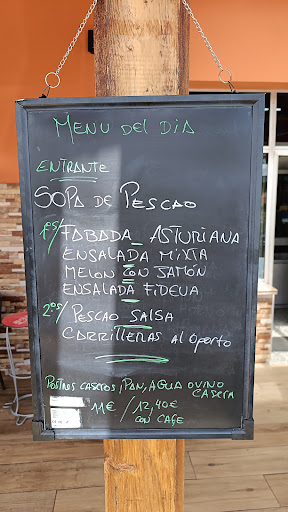 MENU DEL DIA
ENTRANTE
SOPA DE PESCAO
1ºS/ FABADA ASTURIANA
ENSALADA MIXTA
MELON CON JAMÓN
ENSALADA FIDEUA
2ºS/ PESCAO SALSA
CARRILLERAS AL OPORTO
POSTRES CASEROS, PAN, AGUA O VINO
CASERA
11€ / 12,40€
CON CAFE